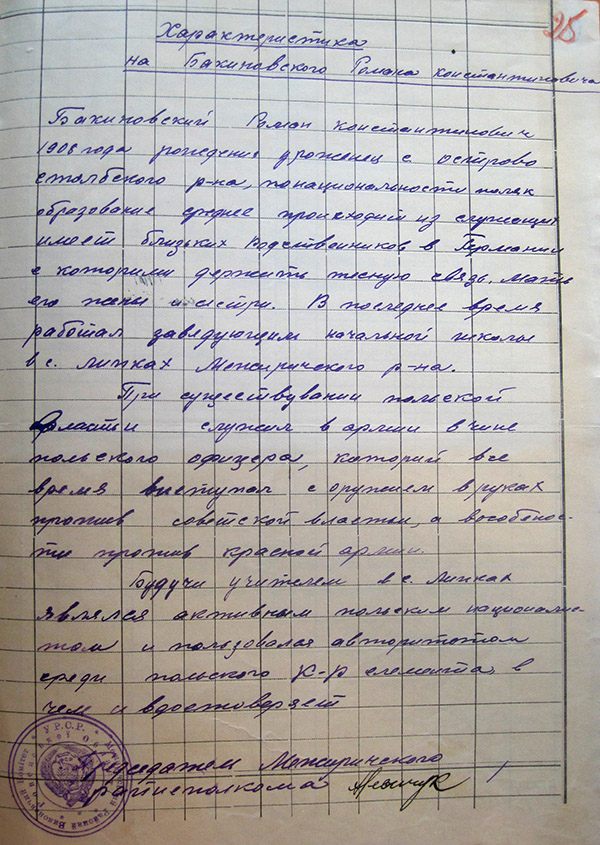 25
Характеристика
на Бахиновского Романа Константиновича
Бахиновский Роман Константинович
1908 года рождения уроженец с. острово
р-на, по национальности поляк
образование среднее происходит из служащих
имеет близьких родственников в Германии
с которими держить тесную связь, мать
его жены и сестри. В последнее время
работал заведующим начальной школы
в с. Липках Межиричского р-на.
При существувании польской
власти служил в армии в чине
польского офицера, которий все
время виступал с оружием в руках
против советской власти, а вособенос-
ти против красной армии.
Будучи учителем в с. Липках
являлся активным польским националис-
том и пользовался авторитетом
среди польского к-р елемента, в
чем и вдостоверяет
Председатель Межиричского
райисполкома
У.Р.С.Р.